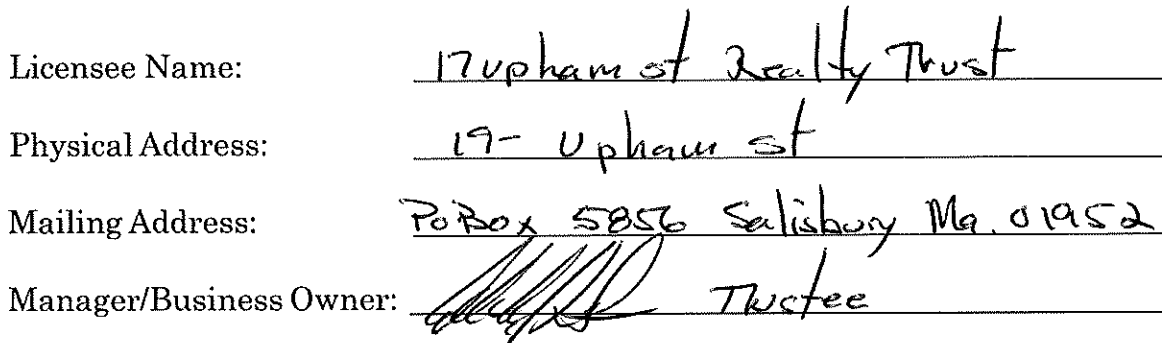 Licensee Name: 17 Upham st Realty Trust
Physical Address: 19- Upham st
Mailing Address: PoBox 5856 Salisbury Ma. 01952
Manager/Business Owner: Trustee